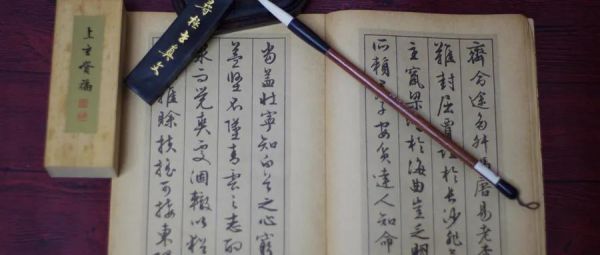 齊命途多舛馮唐易老李
難封屈賈誼於長沙非
主竄梁鴻於海曲豈乏明
所賴君子安貧達人知命
當益壯寧知白首之心窮
益堅不墜青雲之志酌
而覺爽處涸轍以猶
雖賒扶搖可接東